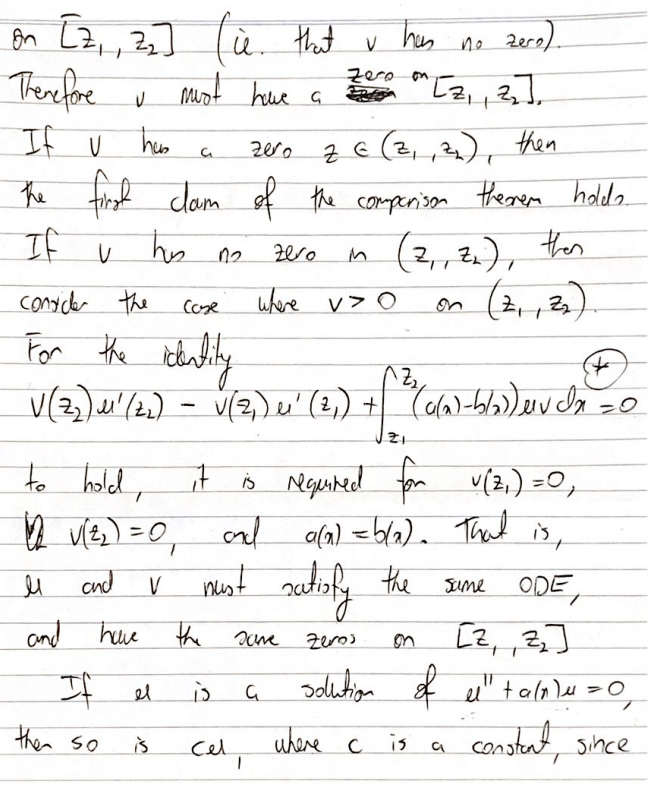 on [z₁, z₂] (ie. that v has no zero).
Therefore v must have a zero on [z₁, z₂].
If v has a zero z ∈ (z₁, z₂), then
the first claim of the comparison theorem holds.
If v has no zero in (z₁, z₂), then
consider the case where v > 0 on (z₁, z₂).
For the identity
v(z₂)u'(z₂) - v(z₁)u'(z₁) + ∫_{z₁}^{z₂} (a(x)-b(x))uv dx = 0 (*)
to hold, it is required for v(z₁) = 0,
v(z₂) = 0, and a(x) = b(x). That is,
u and v must satisfy the same ODE,
and have the same zeros on [z₁, z₂]
If u is a solution of u'' + a(x)u = 0,
then so is cu, where c is a constant, since